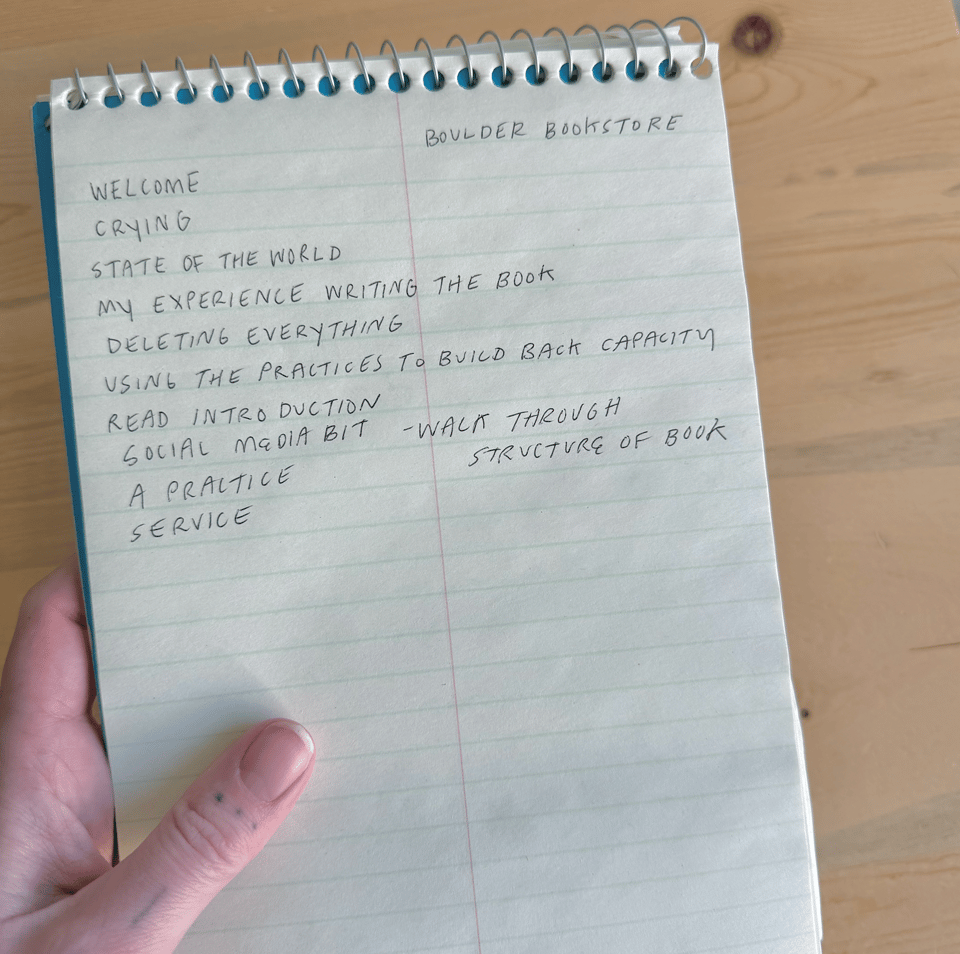 BOULDER BOOKSTORE
WELCOME
CRYING
STATE OF THE WORLD
MY EXPERIENCE WRITING THE BOOK
DELETING EVERYTHING
USING THE PRACTICES TO BUILD BACK CAPACITY
READ INTRODUCTION
SOCIAL MEDIA BIT -WALK THROUGH
STRUCTURE OF BOOK
A PRACTICE
SERVICE